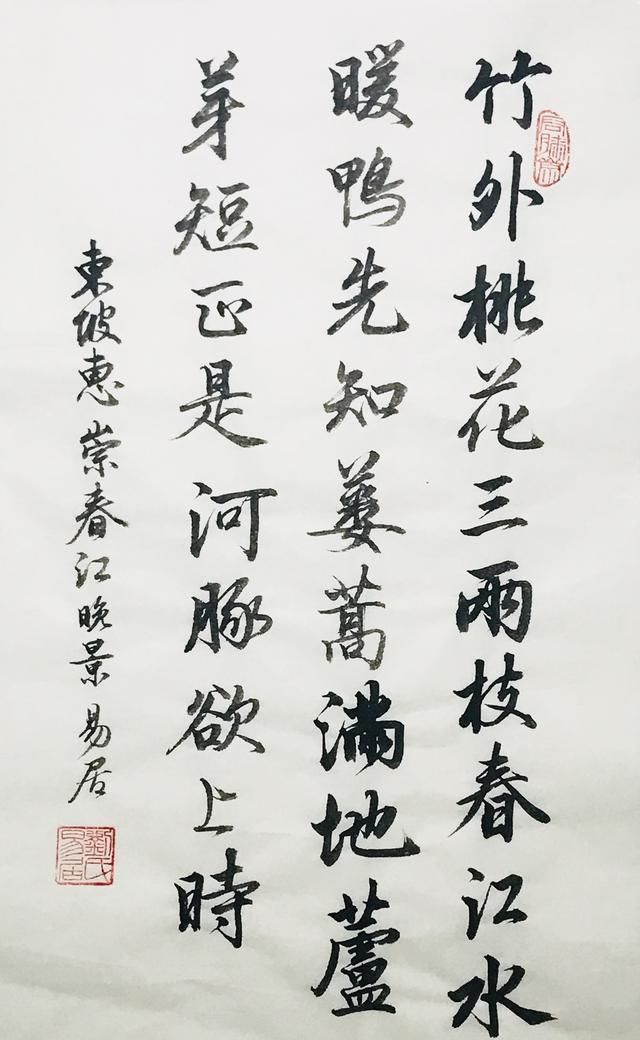 竹外桃花三兩枝春江水
暖鴨先知蔞蒿滿地蘆
芽短正是河豚欲上時
東坡惠崇春江晚景易居
劉氏易居